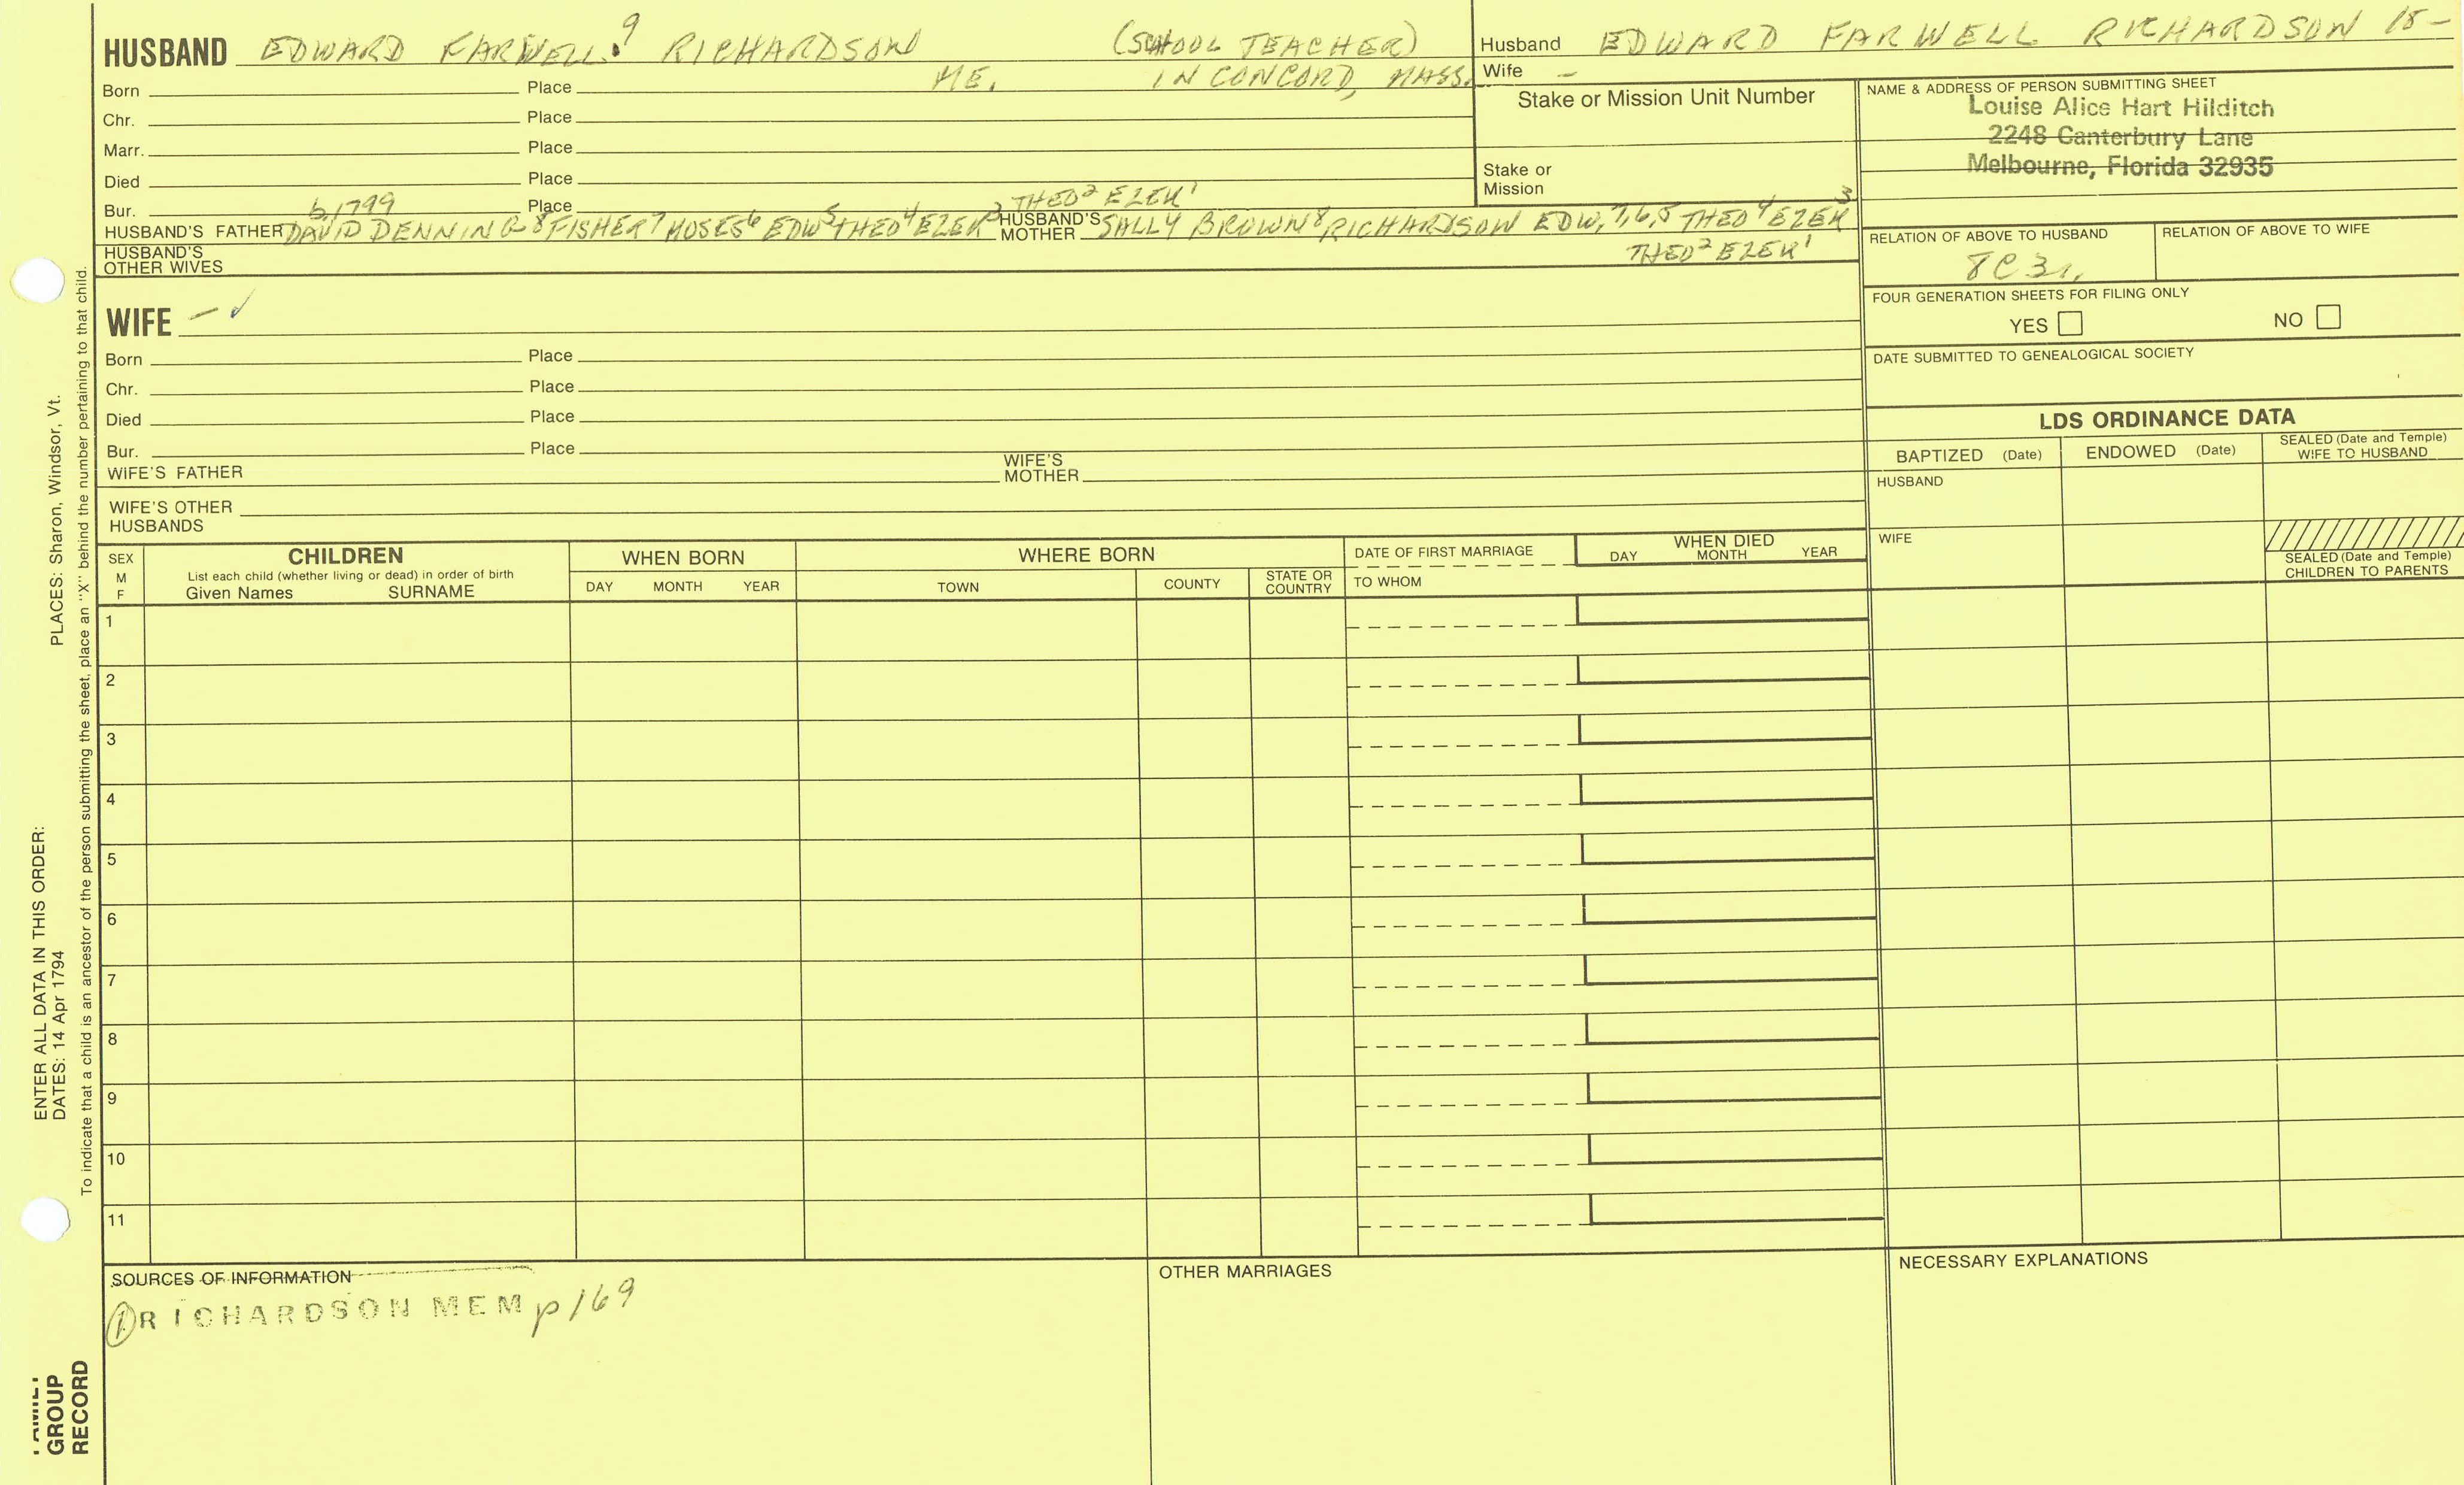 HUSBAND EDWARD FARWELL⁹ RICHARDSON (SCHOOL TEACHER)
Born Place ME. IN CONCORD, MASS.
Chr. Place
Marr. Place
Died Place
Bur. b.1799 Place THEO² EZEK¹
HUSBAND'S FATHER DAVID DENNING⁸ FISHER⁷ MOSES⁶ EDW⁵ THEO⁴ EZEK³ HUSBAND'S MOTHER SALLY BROWN⁸ RICHARDSON EDW,⁷,⁶,⁵ THEO⁴ EZEK³
THEO² EZEK¹
HUSBAND'S OTHER WIVES
Husband EDWARD FARWELL RICHARDSON 18-
Wife -
Stake or Mission Unit Number
Stake or Mission
NAME & ADDRESS OF PERSON SUBMITTING SHEET
Louise Alice Hart Hilditch
2248 Canterbury Lane
Melbourne, Florida 32935
RELATION OF ABOVE TO HUSBAND RELATION OF ABOVE TO WIFE
8C3r,
FOUR GENERATION SHEETS FOR FILING ONLY
YES NO
DATE SUBMITTED TO GENEALOGICAL SOCIETY
WIFE - ✓
Born Place
Chr. Place
Died Place
Bur. Place
WIFE'S FATHER WIFE'S MOTHER
WIFE'S OTHER HUSBANDS
LDS ORDINANCE DATA
BAPTIZED (Date) ENDOWED (Date) SEALED (Date and Temple) WIFE TO HUSBAND
HUSBAND
WIFE
SEALED (Date and Temple) CHILDREN TO PARENTS
SEX M F
CHILDREN
List each child (whether living or dead) in order of birth
Given Names SURNAME
WHEN BORN
DAY MONTH YEAR
WHERE BORN
TOWN COUNTY STATE OR COUNTRY
DATE OF FIRST MARRIAGE
TO WHOM
WHEN DIED
DAY MONTH YEAR
1
2
3
4
5
6
7
8
9
10
11
SOURCES OF INFORMATION
① RICHARDSON MEM p169
OTHER MARRIAGES
NECESSARY EXPLANATIONS
PLACES: Sharon, Windsor, Vt.
ENTER ALL DATA IN THIS ORDER:
DATES: 14 Apr 1794
To indicate that a child is an ancestor of the person submitting the sheet, place an "X" behind the number pertaining to that child.
FAMILY
GROUP
RECORD